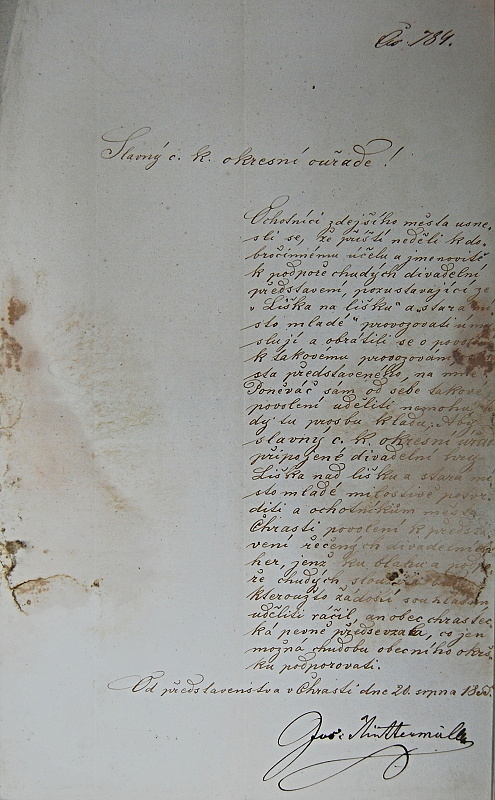 Čís. 784.
Slavný c. k. okresní ouřade!
Ochotníci zdejšího města usne-
sli se, že příští neděli k do-
bročinnému účelu a jmenovitě
k podpoře chudých divadelní
představení, pozustavající ze
v "Liška na lišku" a "stara mí
sto mladé" provozovati úmy
slují a obrátili se o povol
k takovému provozování
sta představeného, na mne
Poněváč sám od sebe takové
povolení uděliti nemohu,
dy tu prosbu kladu, by
slavný c. k. okresní úřad
připojené divadelní hry
Liška nad lišku a stara mí
sto mladé milostivě potvr
diti a ochotníkům města
Chrasti povolení k předsta
vení řečených divadelních
her, jenž ku blahu a
ře chudých
kteroužto žádostí souhlasem
uděliti ráčil, an obec chrastec
ká pevně předsevzala, co jen
možná chudobu obecního okrš-
ku podporovati.
Od představenstva v Chrasti dne 20. srpna